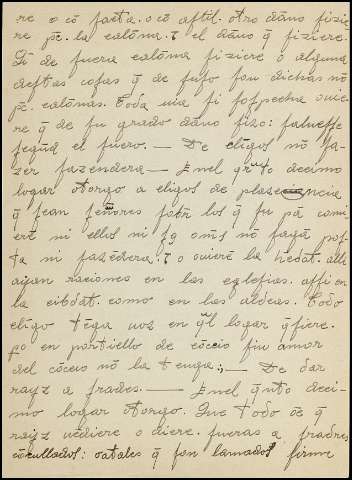 re o cõ farta. o cõ astil. otro dãno fizie
re pē. la calõma. τ el dãno q̃ fiziere.
Si de fuera calõma fiziere o alguna
destas cosas q̃ de suso son dichas nõ
pē. calõnas. Toda uia si sospecha ouie
re q̃ de su grado dãno fizo: saluesse
segũd el fuero. — De cl'igos nõ fa-
zer fazendera — Enel q̃rto decimo
logar otorgo a cl'igos de plazencia
q̃ sean señores
ũt ni ellos ni sꝯ om̃s nõ fagã pos-
ta ni fazẽdera. τ o ouierẽ la hedat. alli
ayan raciones en las eglesias. assi en
la cibdat. como en las aldeas. Todo
cl'igo tẽga uoz en q̃l logar q̃siere.
po en portiello de cõceio sin amor
del cõceio nõ la tenga. — De dar
rayz a frades. — Enel q̃nto deci-
mo logar otorgo. Que todo õe q̃
rayz uẽdiere o diere. fueras a fradres
cõcullados: o atales q̃ son lamados firme